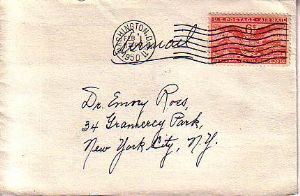 WASHINGTON, D.C.
1950
U.S. POSTAGE AIR MAIL
6¢
Airmail
Dr. Emory Ross,
34 Grammercy Park,
New York City, N.Y.